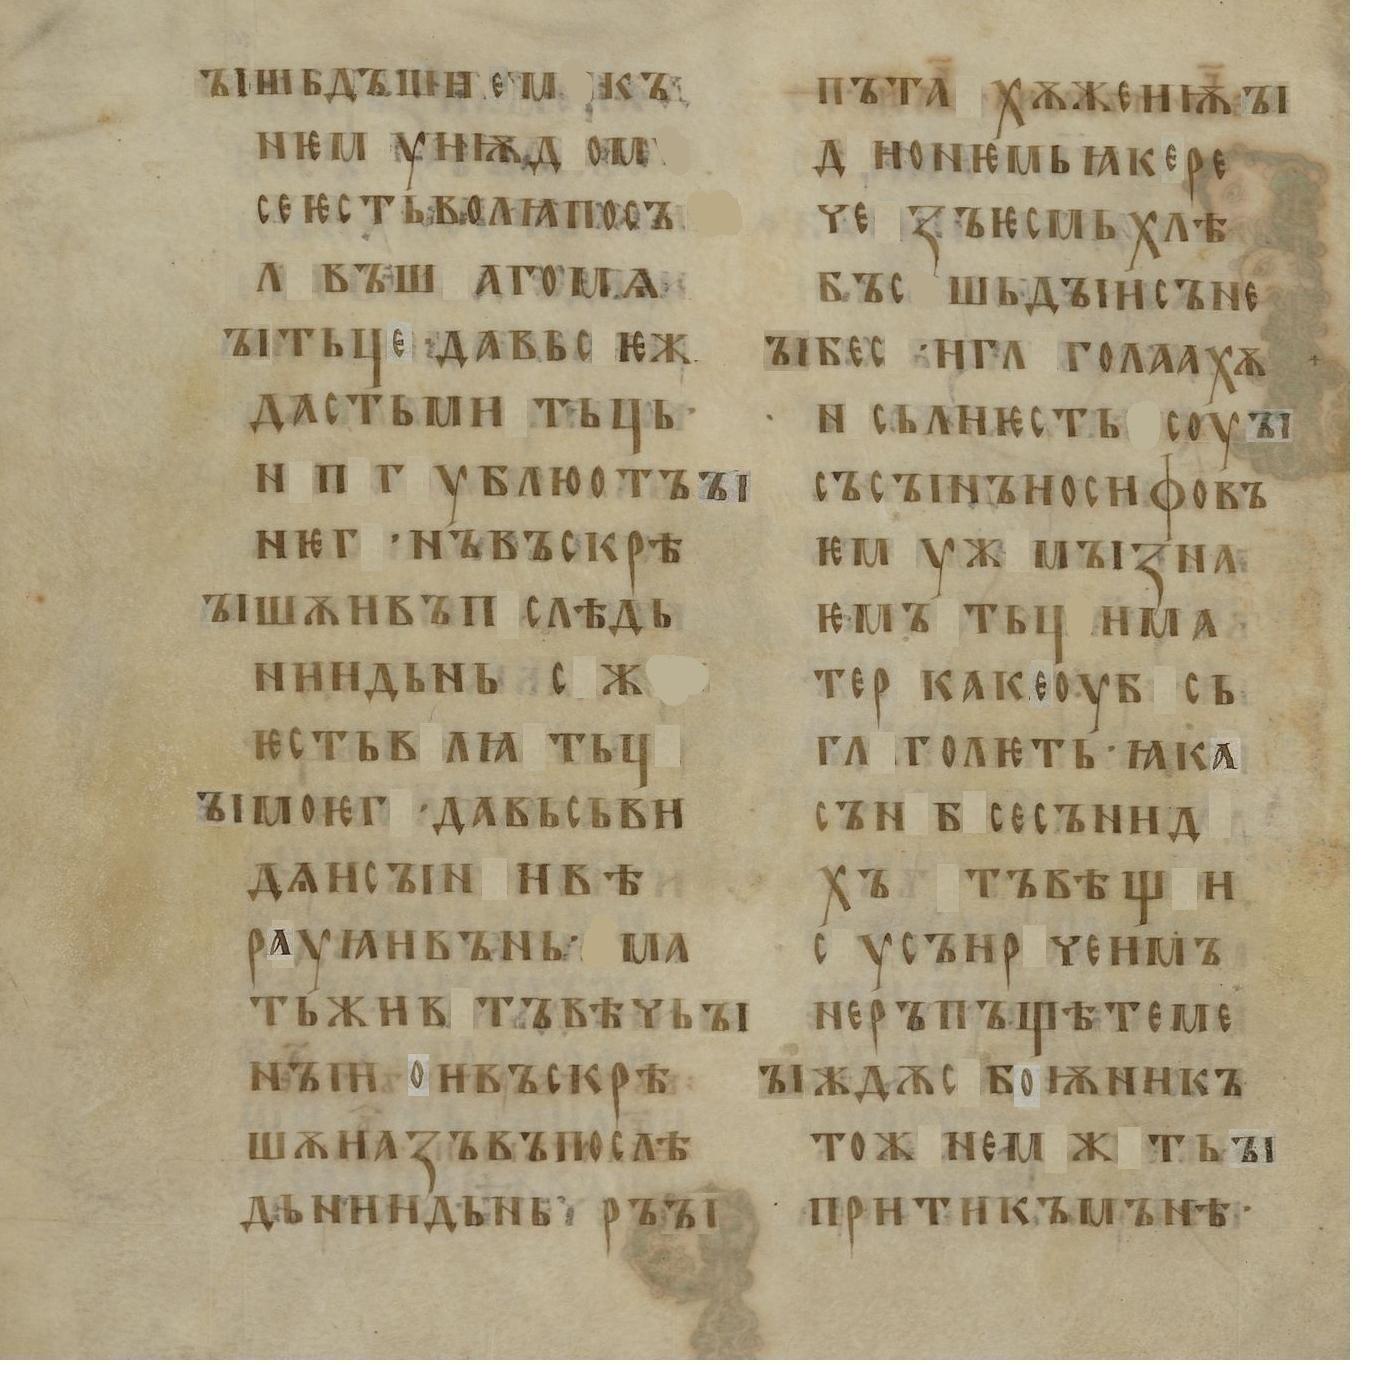 ЪІШБДЪШИЕМ КЪ
НѤМ УНѬД ОМ
СЕѤСТЬВОЛꙖПОСЪ
Л ВЪШ АГОМѦ
ЪІТЬЦЕ·ДАВЬС ѤЖ
ДАСТЬМИ ТЬЦЬ·
И П Г УБЛЮОТЪЪІ
НѤГ ·НЪВЪСКРѢ
ЪІШѪИВЪП СЛѢДЬ
НИИДЬНЬ С Ж
ѤСТЬВ ЛꙖ ТЬЦ
ЪІМОѤГ ·ДАВЬСЬВИ
ДѦИСЪІН ИВѢ
РАУꙖИВЪНЬ· МА
ТЬЖИВ ТЪВѢЧЬЪІ
НЪІИ ОИВЪСКРѢ
ШѪИАЗЪВЪПОСЛѢ
ДЬНИИДЬНЬ· РЪЪІ
ПЪТА ХѪЖЕНИѬЪІ
Д НОНѤМЬꙖКЕРЕ
ЧЕ ЗЪѤСМЬХЛѢ
БЪС ШЬДЪІИСЪНЕ
ЪІБЕС ·ИГЛ ГОЛААХѪ
Н СЬЛИѤСТЬ СОУЪІ
СЪСЪІНЪИОСИФОВЪ
ѤМ УЖ МЪІЗНА
ѤМЪ ТЬЦ ИМА
ТЕР КАКЕОУБ СЬ
ГЛ ГОЛѤТЬ·ꙖКА
СЪН Б СЕСЪНИД
ХЪ ТЪВѢЩ И
С УСЪИР ЧЕИМЪ
НЕРЪПЪЩѢТЕМЕ
ЪІЖДѪС БОѬНИКЪ
ТОЖ НЕМ Ж ТЬЪІ
ПРИТИКЪМЪНѢ·